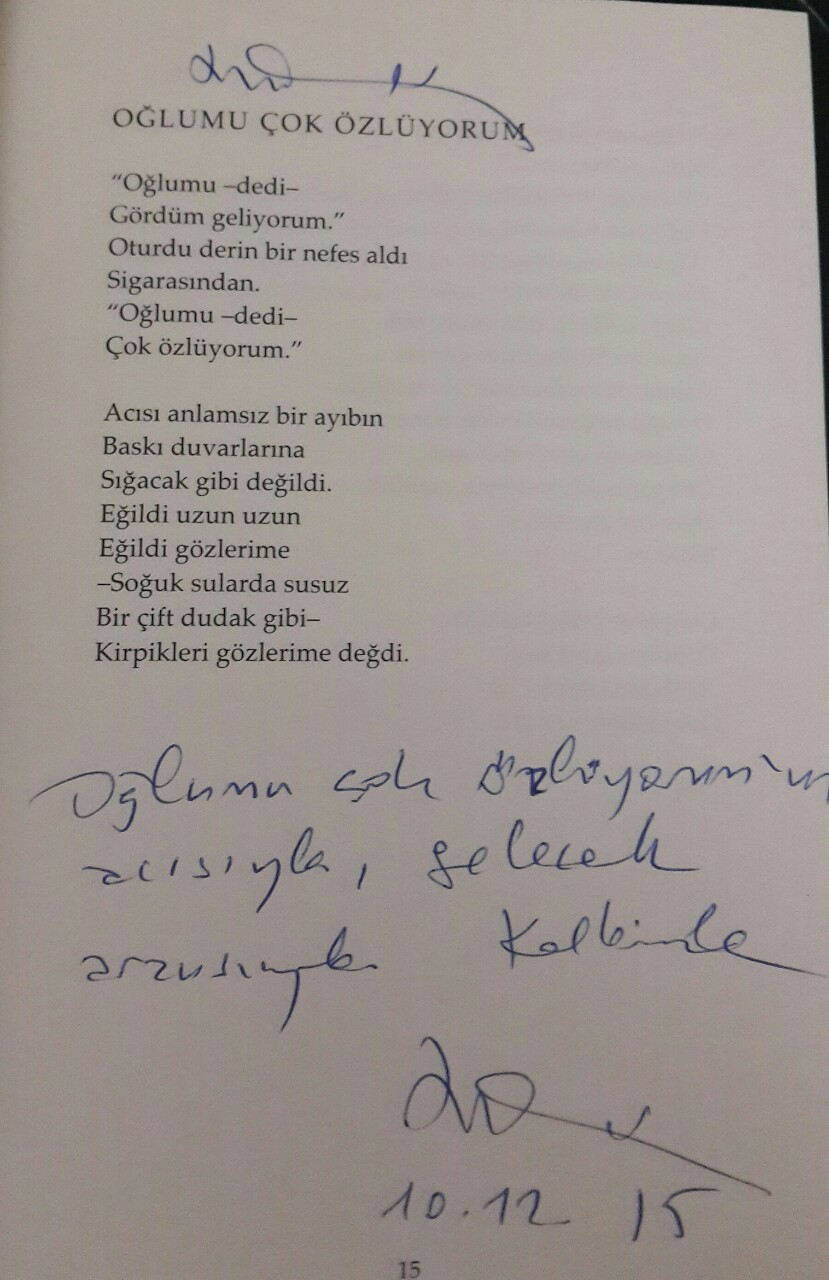 OĞLUMU ÇOK ÖZLÜYORUM
“Oğlumu –dedi–
Gördüm geliyorum.”
Oturdu derin bir nefes aldı
Sigarasından.
“Oğlumu –dedi–
Çok özlüyorum.”
Acısı anlamsız bir ayıbın
Baskı duvarlarına
Sığacak gibi değildi.
Eğildi uzun uzun
Eğildi gözlerime
–Soğuk sularda susuz
Bir çift dudak gibi–
Kirpikleri gözlerime değdi.
Oğlumu çok özlüyorum'un
acısıyla, gelecek
arzusuyla Kalbimle
10.12 15
15